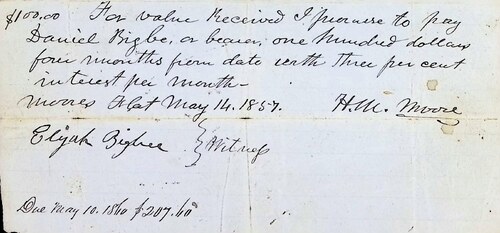 $100.00 For value Received I promise to pay
Daniel Bigbe, or bearer, one hundred dollars
four months from date with three per cent
interest per month-
Moores Flat May 14. 1857. H.M. Moore
Elijah Bigbee } Witness
Due May 10. 1860 $207.60